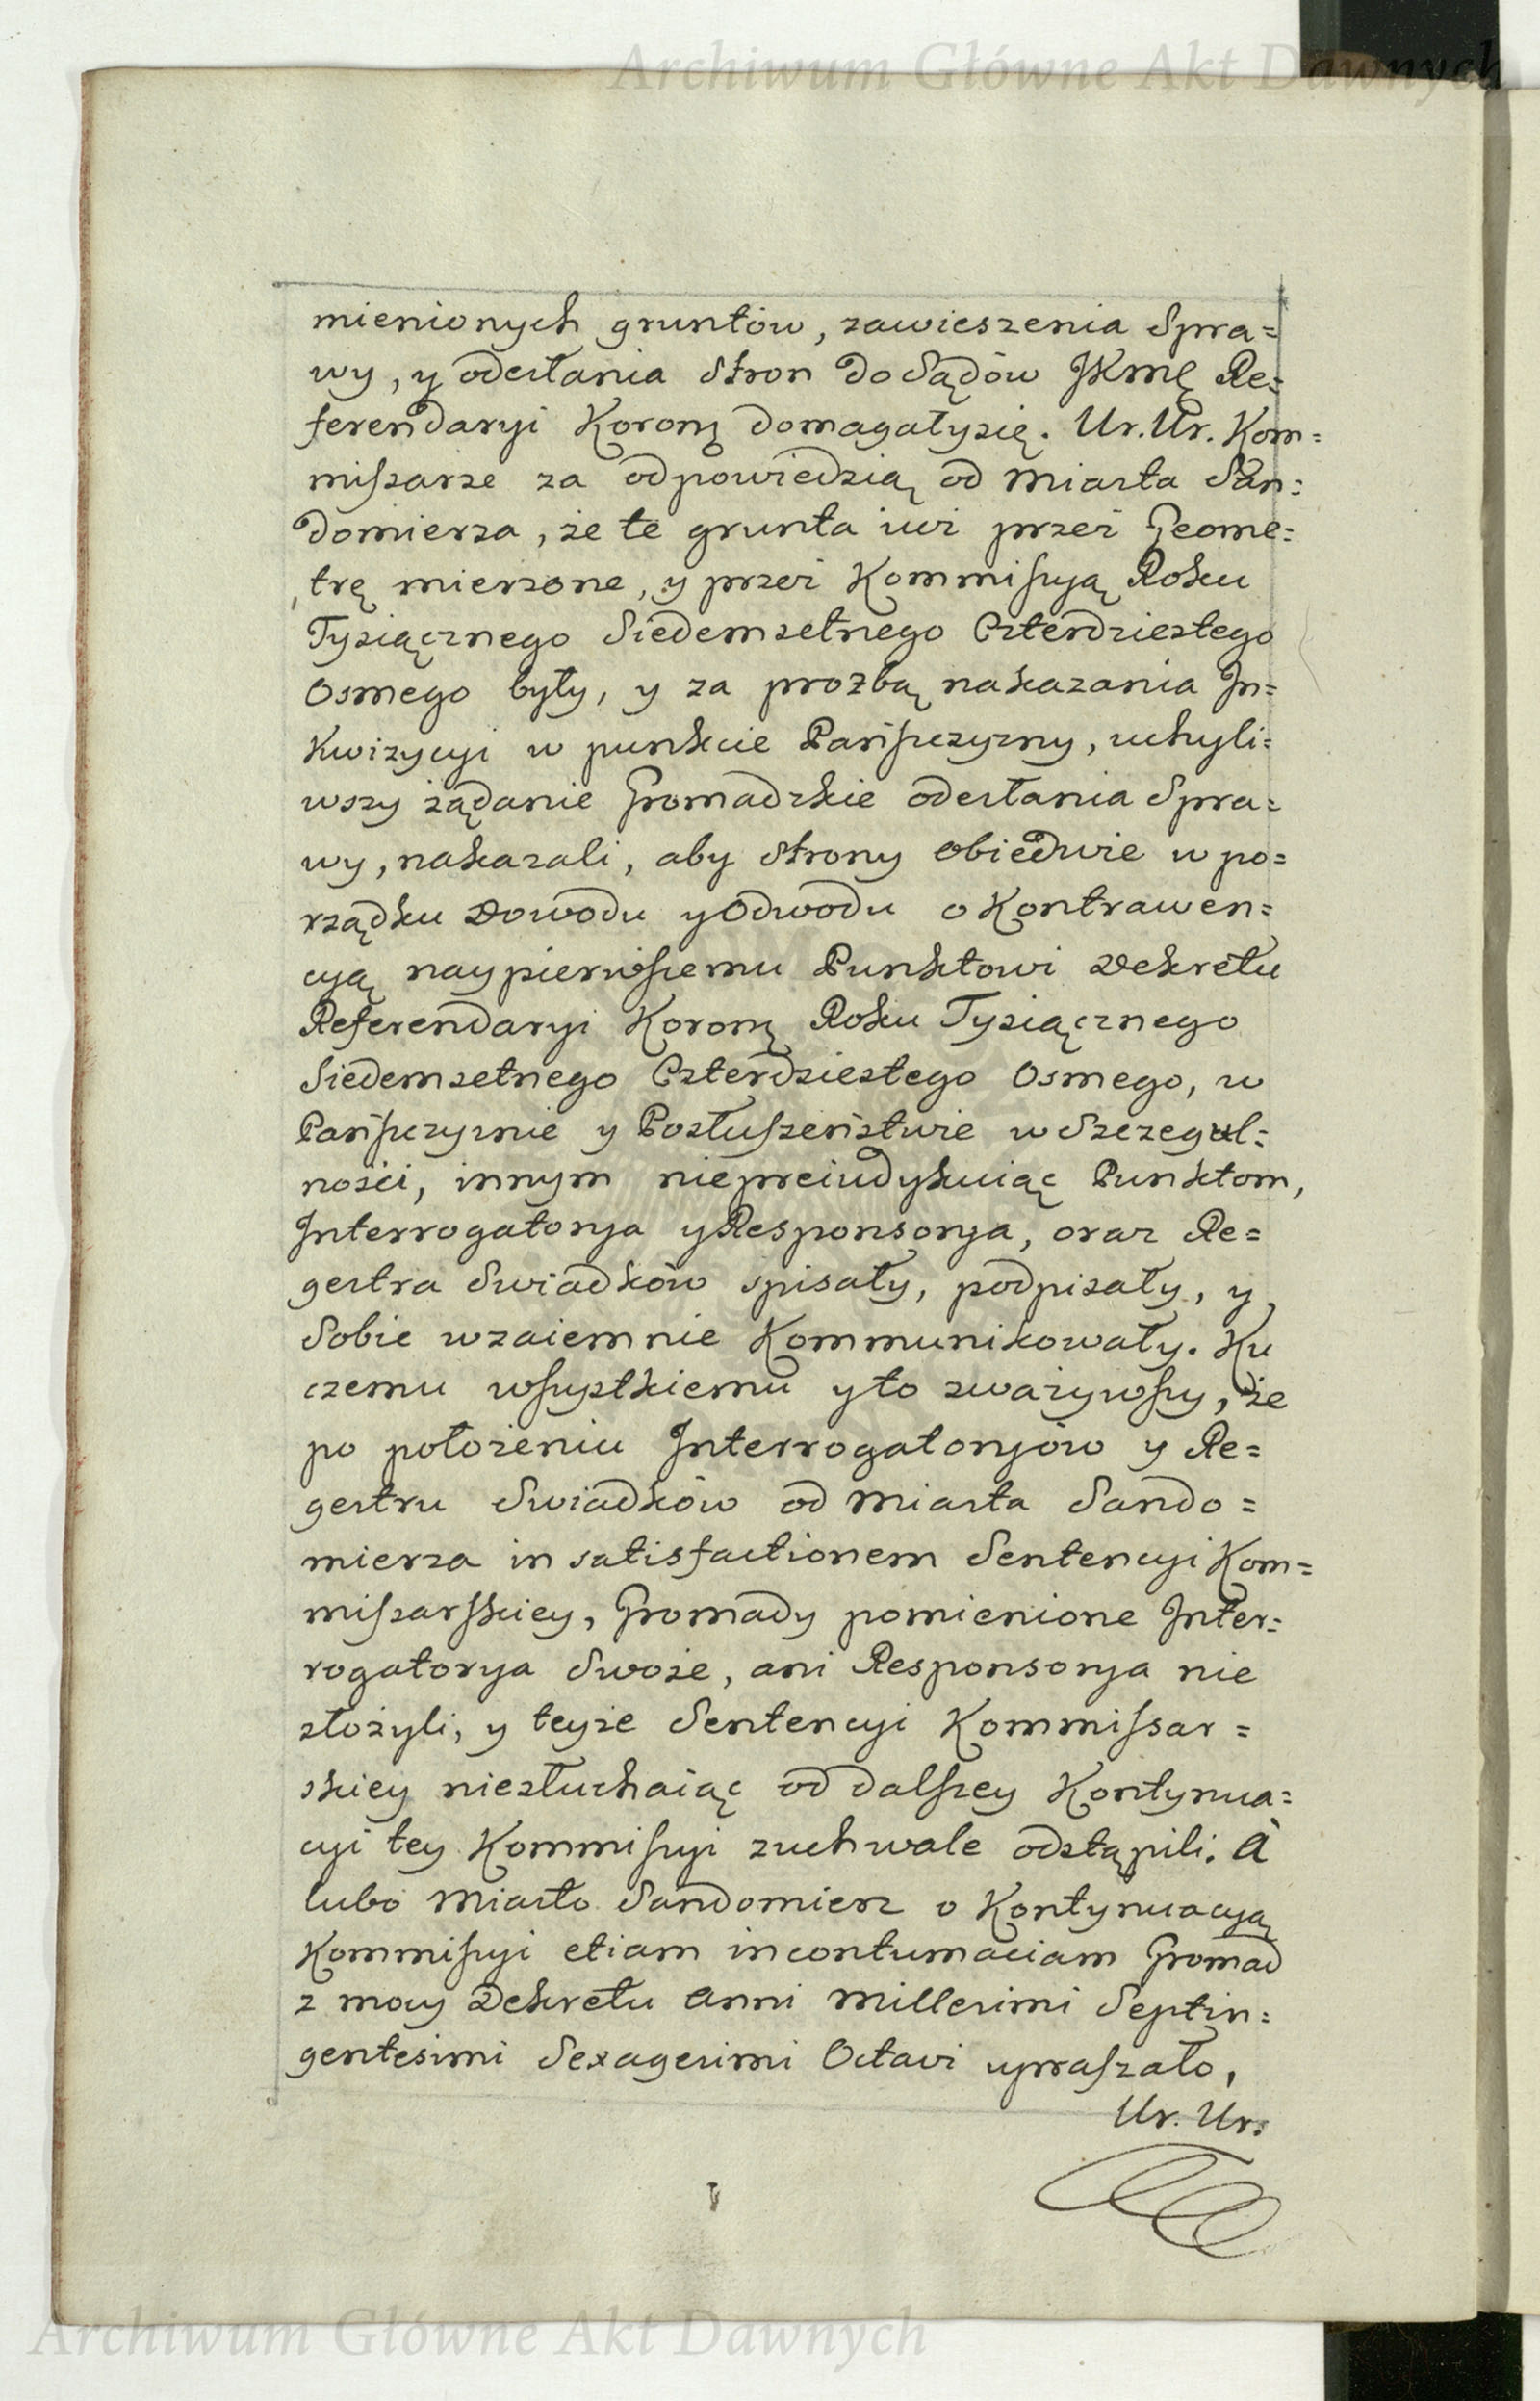 Archiwum Główne Akt Dawnych
mienionych gruntów, zawieszenia Spra=
wy, y odesłania Stron do Sądów JKmę Re=
ferendaryi Koronę domagałysię. Ur. Ur. Kom=
missarze za odpowiedzią od Miasta San=
domierza, że te grunta iuż przez Geome=
trę mierzone, y przez Kommissyą Roku
Tysiącznego Siedemsetnego Czterdziestego
Osmego były, y za prozbą nakazania In=
kwizycyi w punkcie Pańszczyzny, uchyli=
wszy żądanie Gromadzkie odesłania Spra=
wy, nakazali, aby Strony obiedwie w po=
rządku Dowodu y Odwodu o Kontrawen=
cyą naypierwszemu Punktowi Dekretu
Referendaryi Koronę Roku Tysiącznego
Siedemsetnego Czterdziestego Osmego, w
Pańszczyznie y Posłuszeństwie w Szczegul=
ności, innym nieprejudykuiąc Punktom,
Interrogatorya y Responsorya, oraz Re=
gestra Swiadków spisały, podpisały, y
Sobie wzaiemnie Kommunikowały. Ku
czemu wszystkiemu y to zważywszy, że
po położeniu Interrogatoryów y Re=
gestru Swiadków od Miasta Sando=
mierza in satisfactionem Sentencyi Kom=
missarskiey, Gromady pomienione Inter=
rogatorya Swoie, ani Responsorya nie
złożyli, y teyże Sentencyi Kommissar=
skiey niesłuchaiąc od dalszey Kontynua=
cyi tey Kommissyi zuchwale odstąpili. A
lubo Miasto Sandomierz o Kontynuacyą
Kommissyi etiam in contumaciam Gromad
z mocy Dekretu Anni Millesimi Septin=
gentesimi Sexagesimi Octavi upraszało,
Ur. Ur.
Archiwum Główne Akt Dawnych